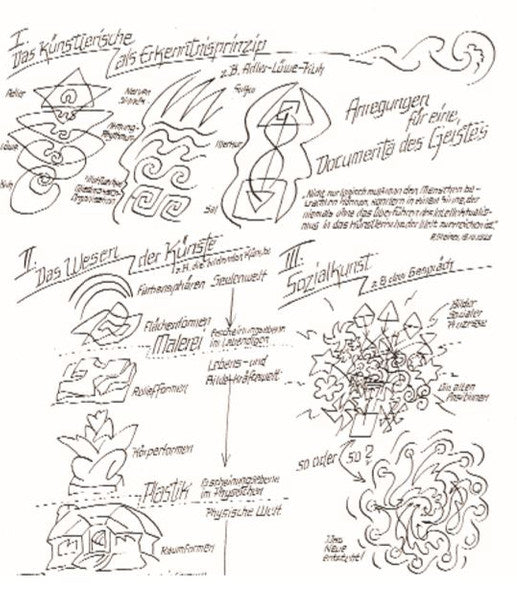 I.
Das Künstlerische
als Erkenntnisprinzip
z.B. Adler-Löwe-Kuh
Adler
Löwe
Kuh
Nerven
Sinne
Atmung-
Rhythmus
Stoffwechsel
Gliedmassen
Organisation
Sulfur
Merkur
Sal
Anregungen
für eine,
Documenta des Geistes
"Nicht nur logisch muss man den Menschen be-
trachten können, sondern in einem Sinne, der
niemals ohne das Überführen des Intellektualis-
mus in das Künstlerische der Welt
R. Steiner
II.
Das Wesen der Künste
z.B. die bildenden Künste
Farbensphären Seelenwelt
Flächenformen
Malerei Erscheinungsebene
im Lebendigen
Lebens- und
Bildekräftewelt
Reliefformen
Körperformen
Plastik Erscheinungsebene
im Physischen
Physische Welt
Raumformen
III.
Sozialkunst
z.B. das Gespräch
Bilder
sozialer
Prozesse
Die alten
Positionen
so oder so?
Das
Neue
entsteht!